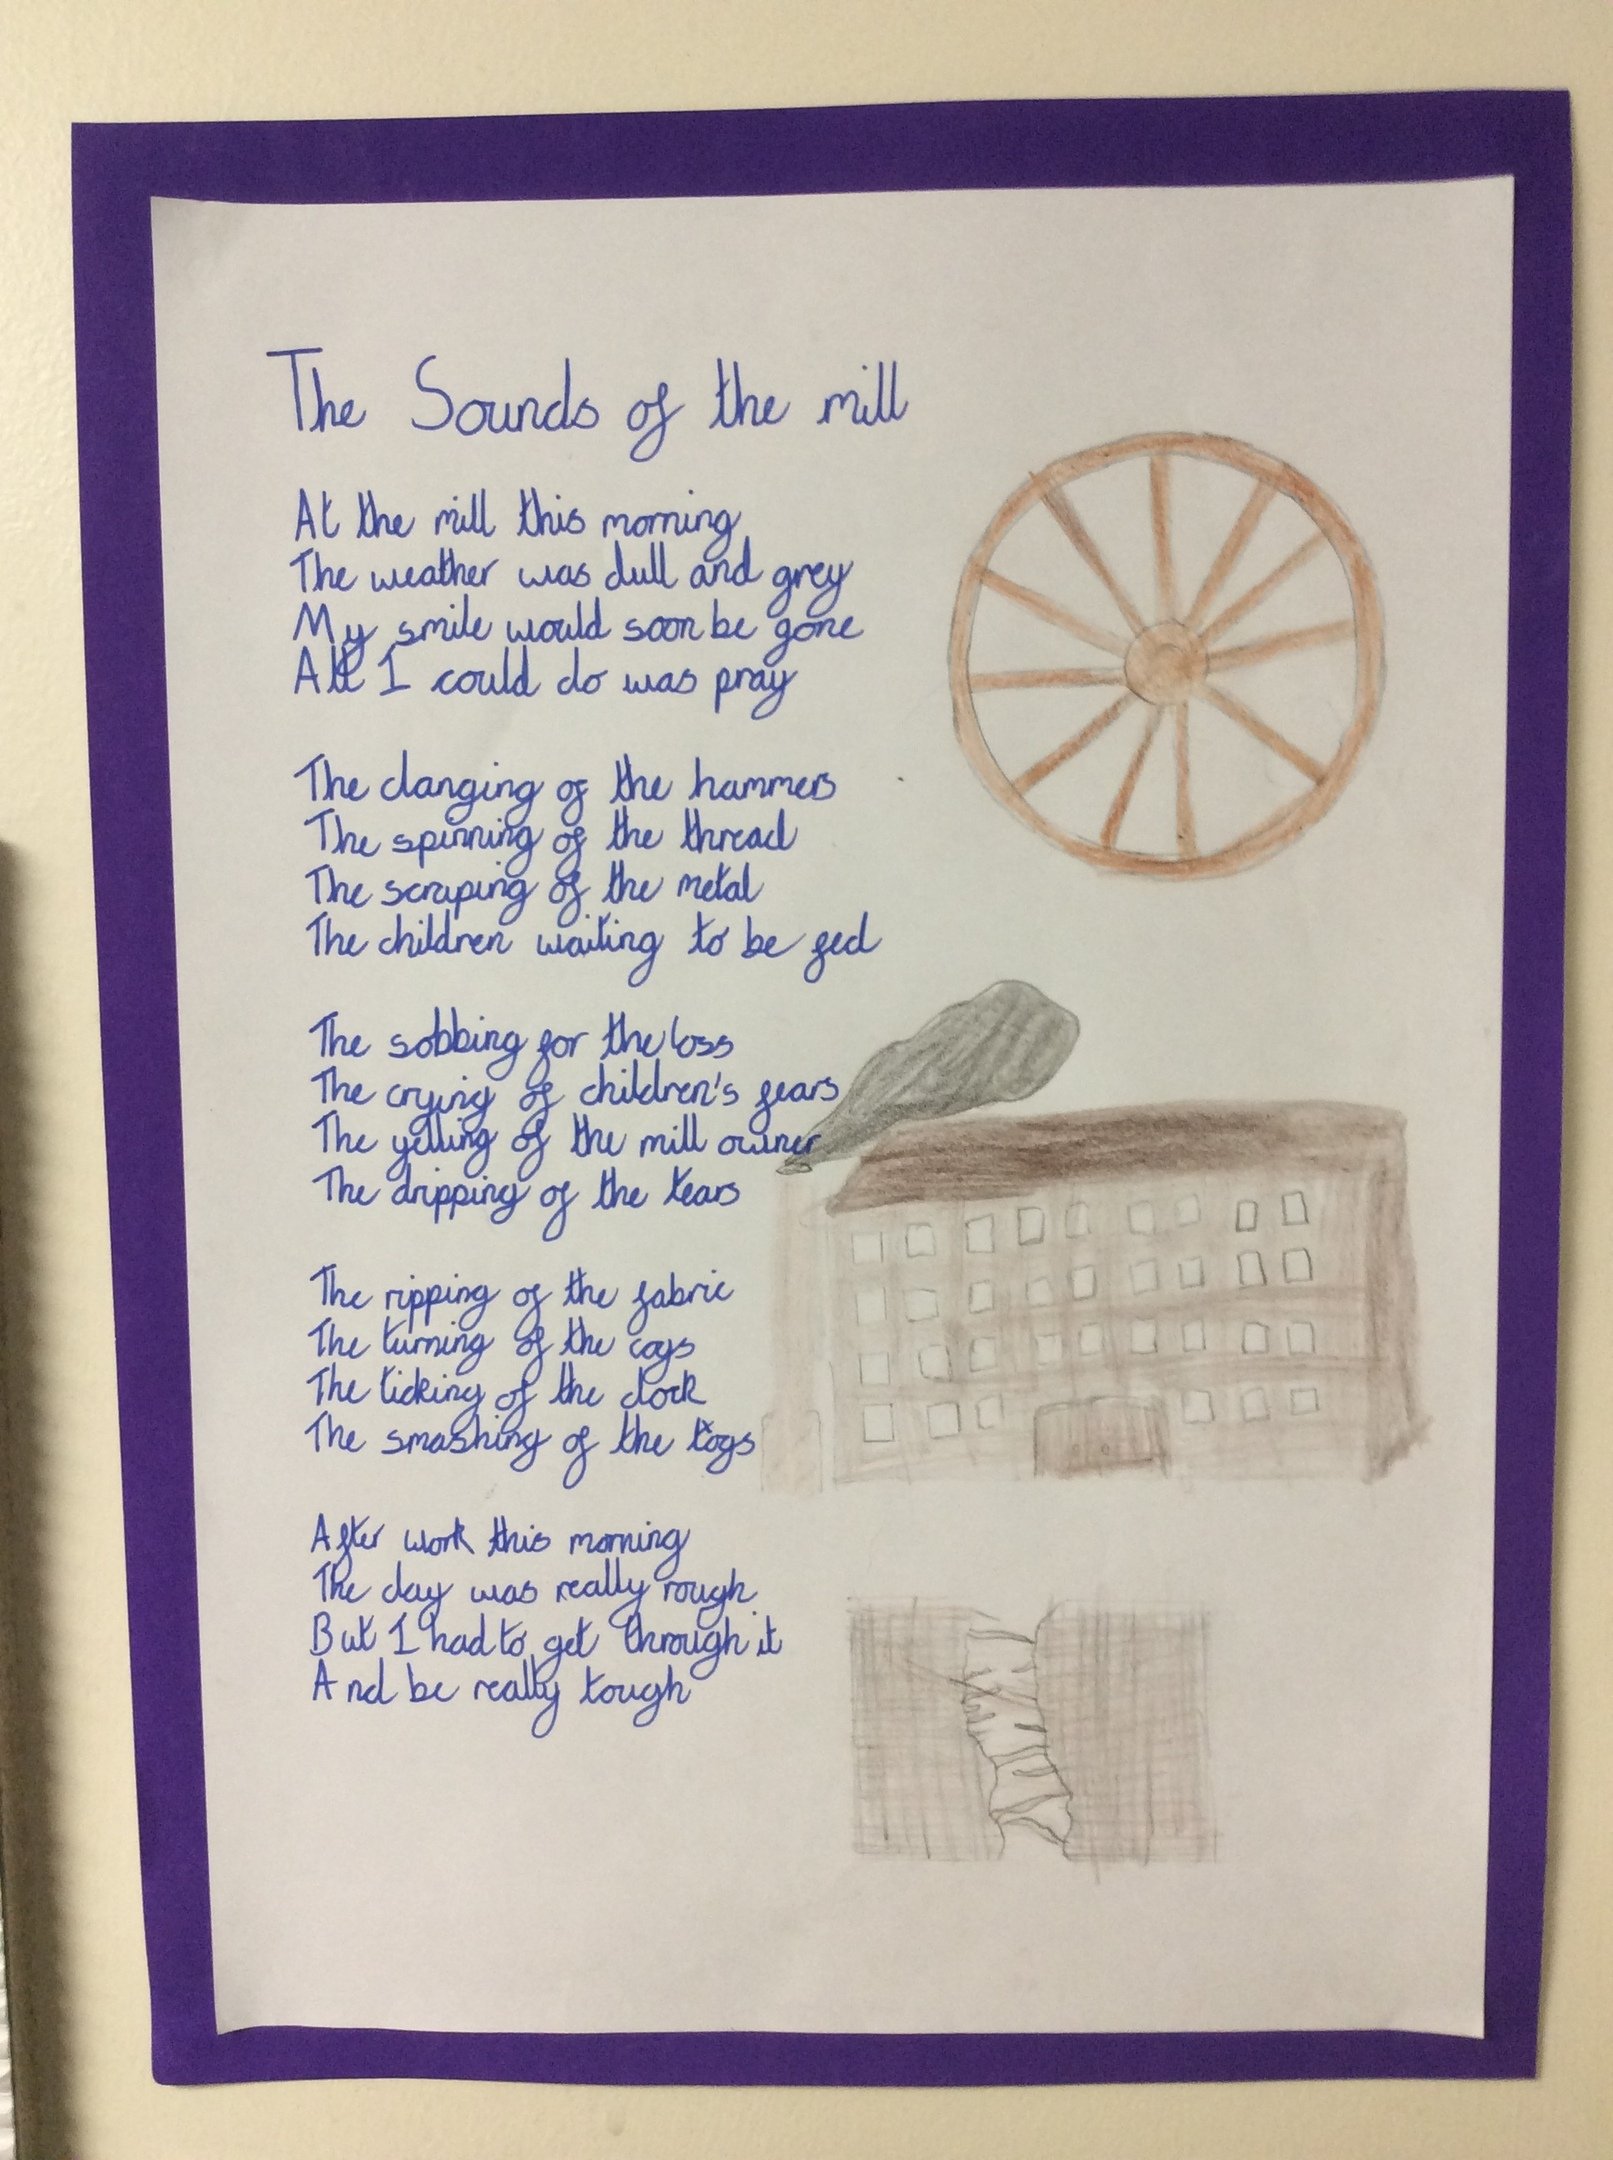 The Sounds of the mill
At the mill this morning
The weather was dull and grey
My smile would soon be gone
All I could do was pray
The clanging of the hammers
The spinning of the thread
The scraping of the metal
The children waiting to be fed
The sobbing for the loss
The crying of children's fears
The yelling of the mill owner
The dripping of the tears
The ripping of the fabric
The turning of the cogs
The ticking of the clock
The smashing of the togs
After work this morning
The day was really rough
But I had to get through it
And be really tough